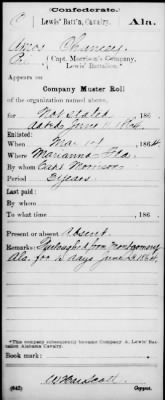 (Confederate.)
C | Lewis' Batt'n, Cavalry. | Ala.
Amos Chancey
(Capt. Morrison's Company,
Lewis' Battalion.*)
Appears on
Company Muster Roll
of the organization named above,
for Not Stated, 186
dated June 11 1864
Enlisted:
When Mar 1st, 1864.
Where Marianna Fla.
By whom Capt Morrison
Period 3 years
Last paid:
By whom
To what time, 186 .
Present or absent Absent.
Remarks: Furloughed from Montgomery
Ala. for 15 days June 1864.
*This company subsequently became Company A, Lewis' Battalion Alabama Cavalry.
Book mark:
(642) Copyist.